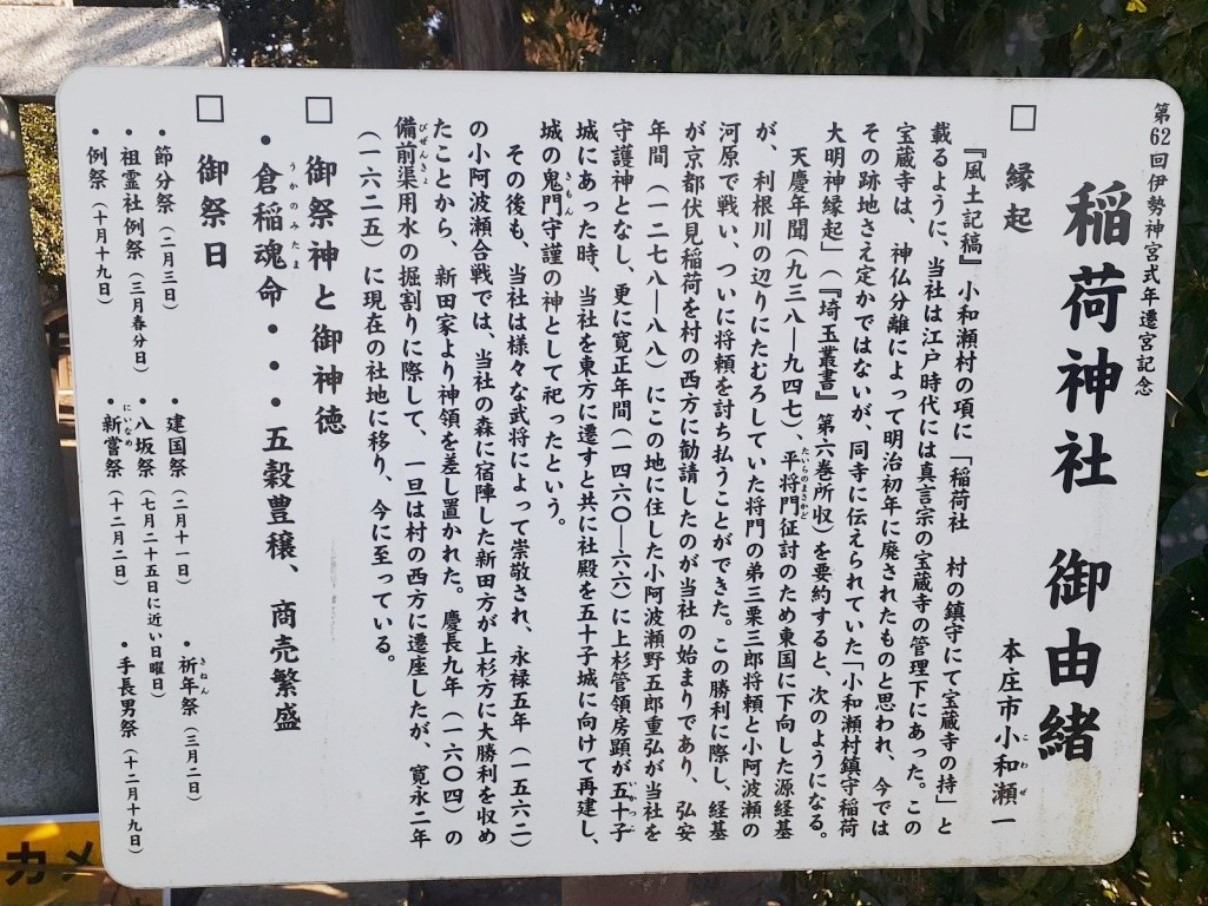 第62回伊勢神宮式年遷宮記念
稲荷神社 御由緒
本庄市小和瀬一
□ 縁起
『風土記稿』小和瀬村の項に「稲荷社 村の鎮守にて宝蔵寺の持」と
載るように、当社は江戸時代には真言宗の宝蔵寺の管理下にあった。この
宝蔵寺は、神仏分離によって明治初年に廃されたものと思われ、今では
その跡地さえ定かではないが、同寺に伝えられていた「小和瀬村鎮守稲荷
大明神縁起」(『埼玉叢書』第六巻所収)を要約すると、次のようになる。
天慶年聞(九三八―九四七)、平将門征討のため東国に下向した源経基
が、利根川の辺りにたむろしていた将門の弟三栗三郎将頼と小阿波瀬の
河原で戦い、ついに将頼を討ち払うことができた。この勝利に際し、経基
が京都伏見稲荷を村の西方に勧請したのが当社の始まりであり、弘安
年間(一二七八―八八)にこの地に住した小阿波瀬野五郎重弘が当社を
守護神となし、更に寛正年間(一四六〇―六六)に上杉管領房顕が五十子
城にあった時、当社を東方に遷すと共に社殿を五十子城に向けて再建し、
城の鬼門守謹の神として祀ったという。
その後も、当社は様々な武将によって崇敬され、永禄五年(一五六二)
の小阿波瀬合戦では、当社の森に宿陣した新田方が上杉方に大勝利を収め
たことから、新田家より神領を差し置かれた。慶長九年(一六〇四)の
備前渠用水の掘割りに際して、一旦は村の西方に遷座したが、寛永二年
(一六二五)に現在の社地に移り、今に至っている。
□ 御祭神と御神徳
・倉稲魂命・・・五穀豊穣、商売繁盛
□ 御祭日
・節分祭(二月三日) ・建国祭(二月十一日) ・祈年祭(三月二日)
・祖霊社例祭(三月春分日) ・八坂祭(七月二十五日に近い日曜日) ・手長男祭(十二月十九日)
・例祭(十月十九日) ・新嘗祭(十二月二日)
カメ